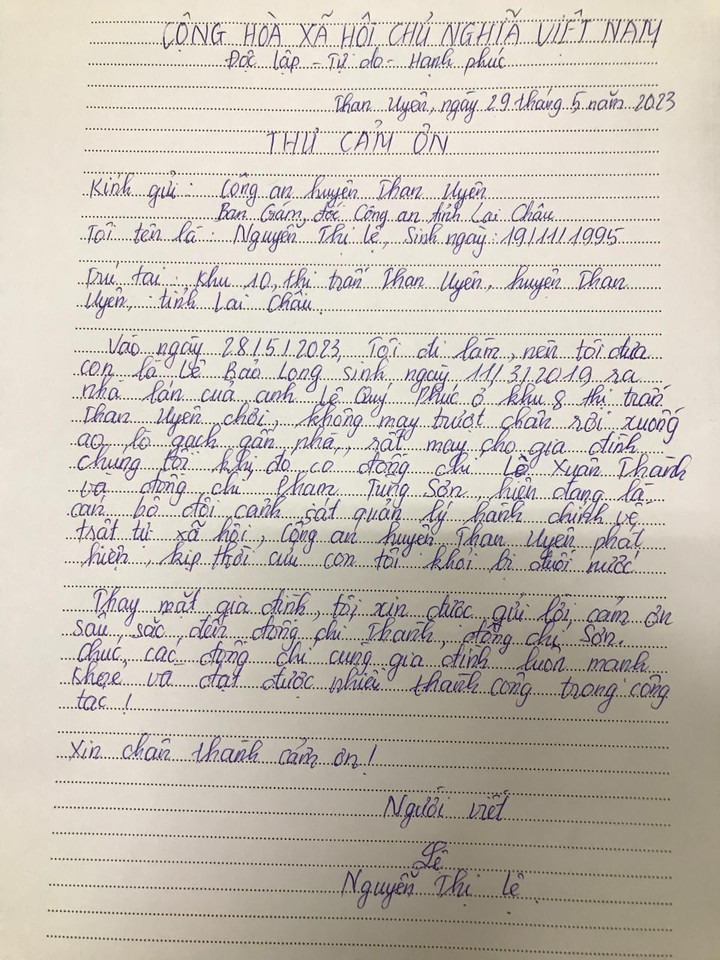 CỘNG HÒA XÃ HÔI CHỦ NGHĨA VIỆT NAM
Độc lập - Tự do - Hạnh phúc
Than Uyên, ngày 29 tháng 5 năm 2023
THƯ CẢM ƠN
Kính gửi : Công an huyện Than Uyên
Ban Giám đốc Công an tỉnh Lai Châu
Tôi tên là : Nguyễn Thị Lệ, Sinh ngày : 19/11/1995
Trú tại : Khu 10, thị trấn Than Uyên, huyện Than
Uyên, tỉnh Lai Châu.
Vào ngày 28/5/2023, Tôi đi làm, nên tôi đưa
con là Lê Bảo Long sinh ngày 11/3/2019 ra
nhà lán của anh Lê Quý Phúc ở khu 8 thị trấn
Than Uyên chơi, không may trượt chân rơi xuống
ao lò gạch gần nhà, rất may cho gia đình
chúng tôi khi đó có đồng chí Lê Xuân Thành
và đồng chí Phạm Tùng Sơn, hiện đang là
cán bộ đội cảnh sát quản lý hành chính về
trật tự xã hội, Công an huyện Than Uyên phát
hiện, kịp thời cứu con tôi khỏi bị đuối nước.
Thay mặt gia đình, tôi xin được gửi lời cảm ơn
sâu sắc đến đồng chí Thành, đồng chí Sơn.
Chúc các đồng chí cùng gia đình luôn mạnh
khỏe và đạt được nhiều thành công trong công
tác !
Xin chân thành cảm ơn !
Người viết
Lệ
Nguyễn Thị Lệ